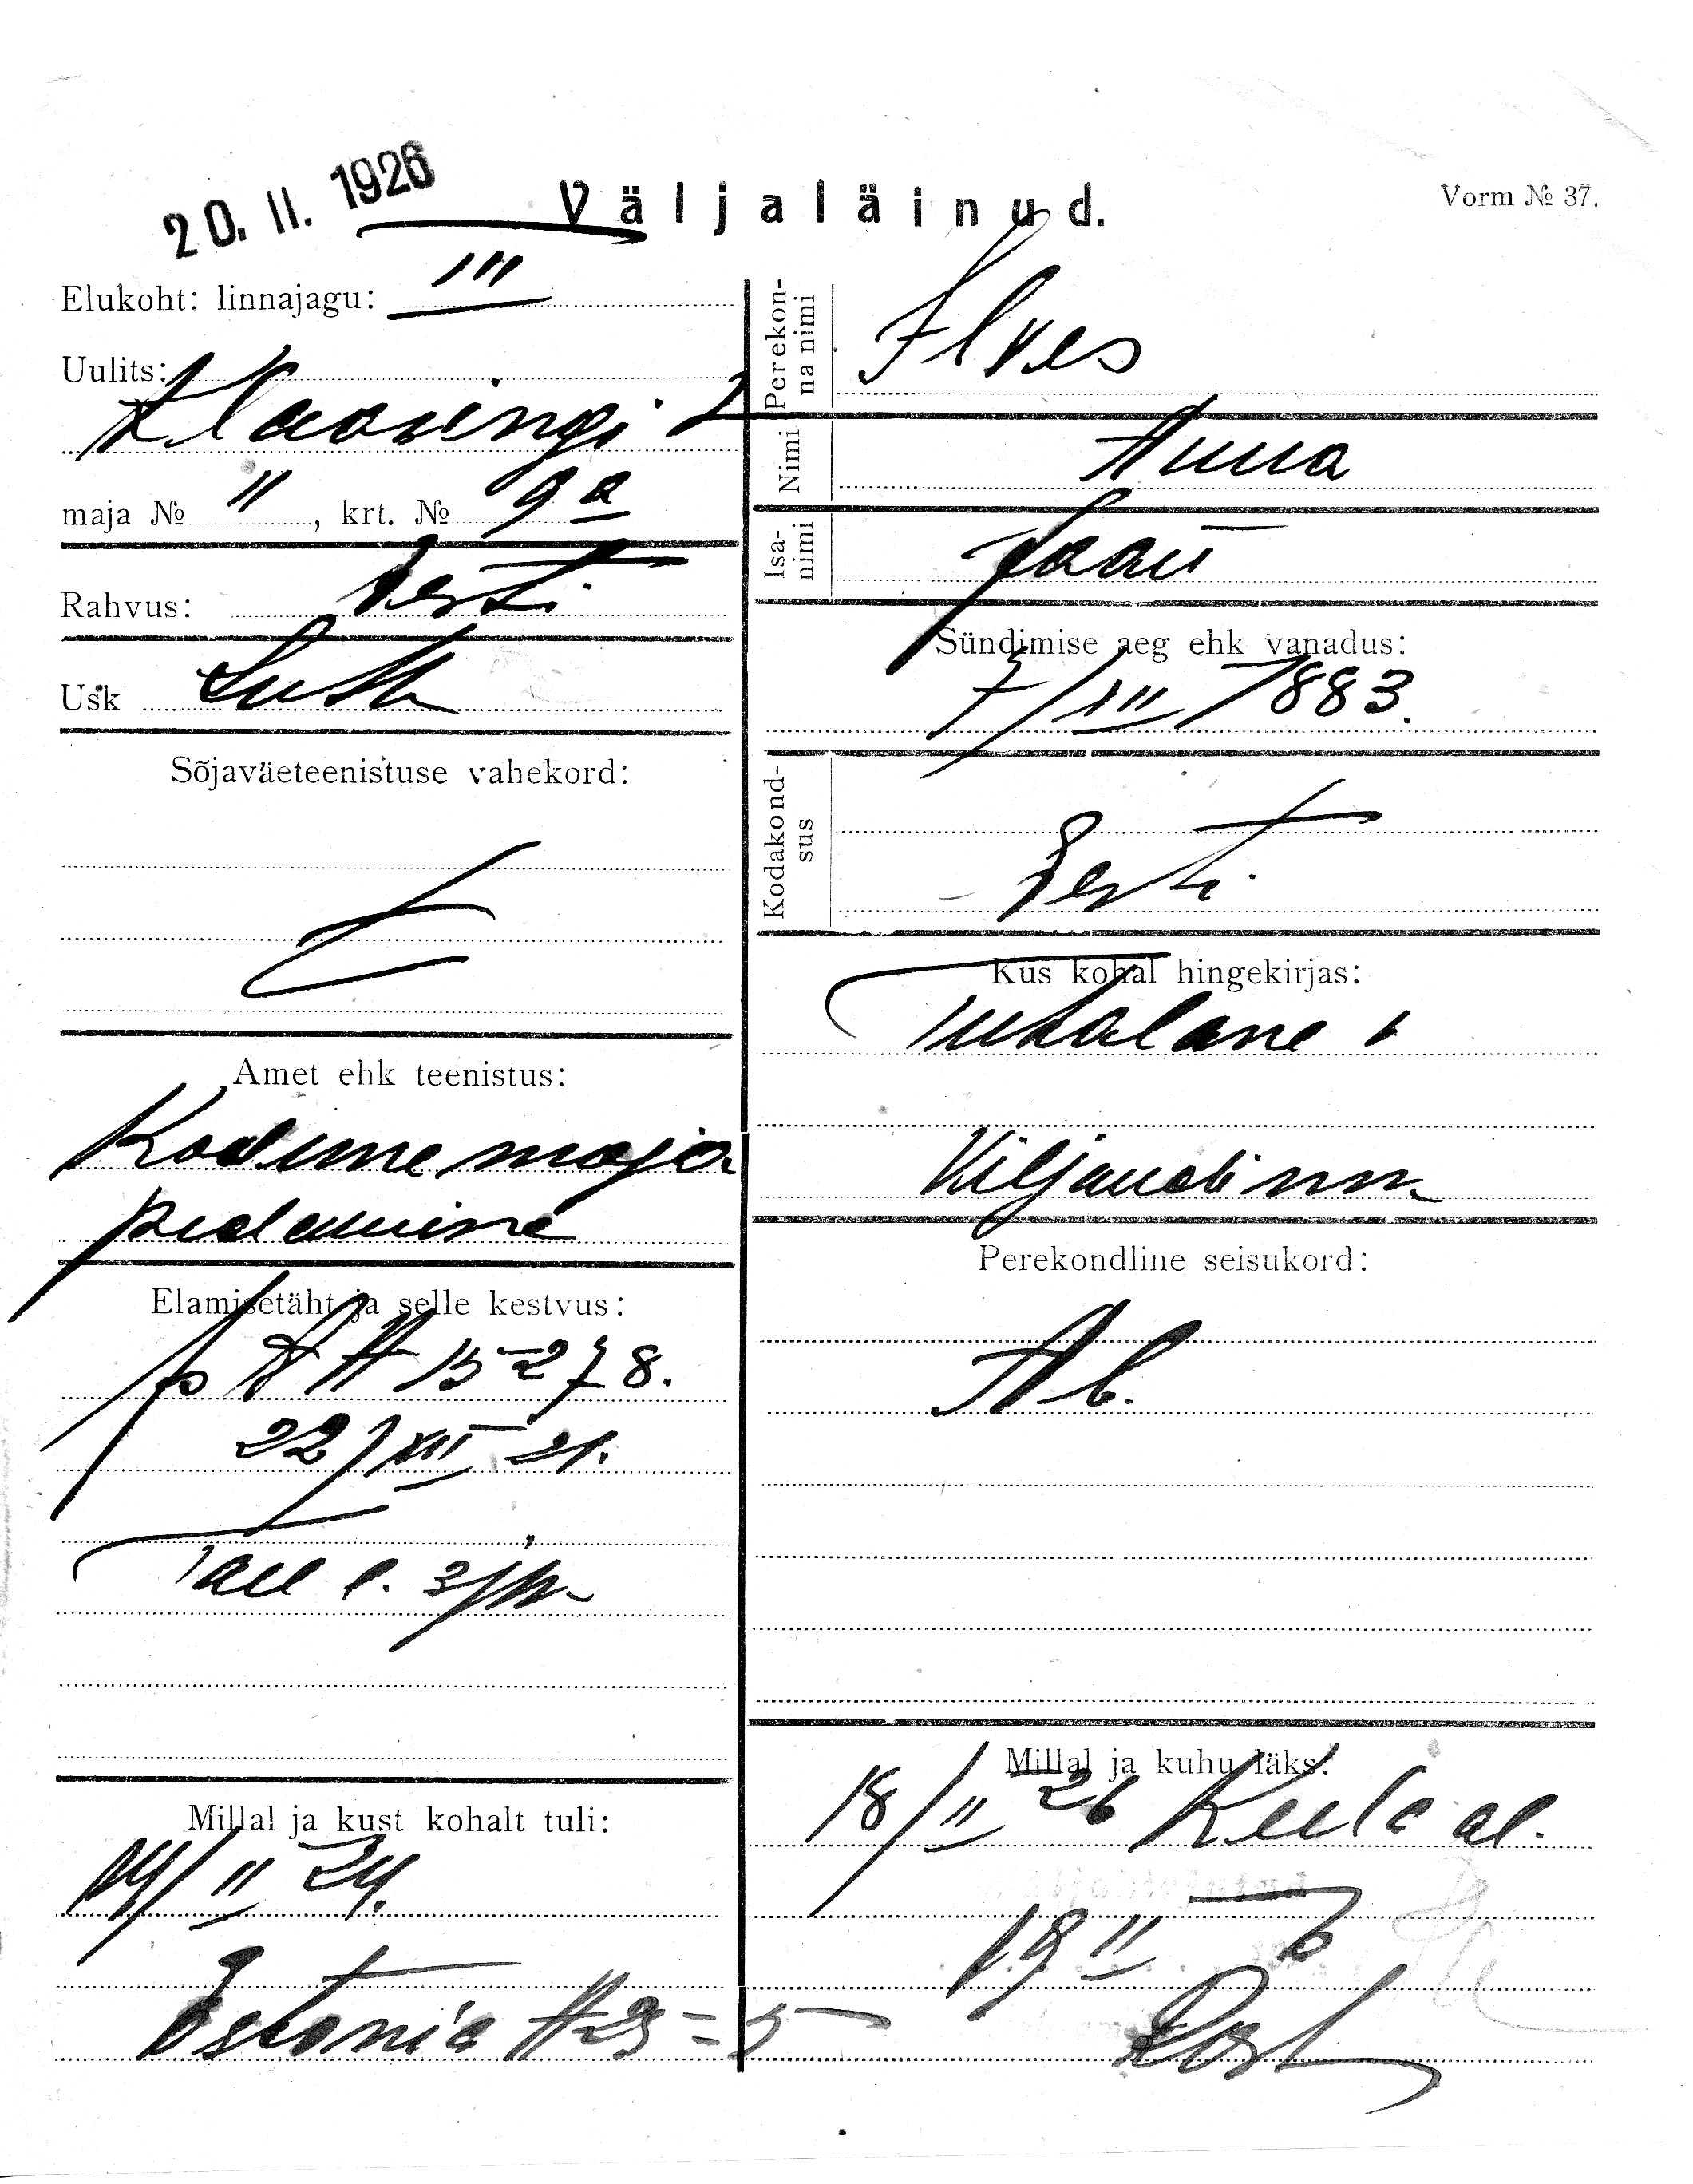 20. II. 1926
Väljaläinud.
Vorm № 37.
Elukoht: linnajagu: III
Uulits:
maja № 11, krt. № 9a
Rahvus: Eesti
Usk Luth
Sõjaväeteenistuse vahekord:
Amet ehk teenistus:
Kodune maja
pidamine
Elamisetäht ja selle kestvus:
15278.
22/XII 21.
Tall l. 3/jsk
Millal ja kust kohalt tuli:
14/II 24.
Estonia 23-5
Perekonna nimi
Ilves
Nimi
Anna
Isanimi
Jaan
Sündimise aeg ehk vanadus:
7/III 1883.
Kodakondsus
Eesti
Kus kohal hingekirjas:
Tuhalane v
Viljandi mm.
Perekondline seisukord:
Ab.
Millal ja kuhu läks:
18/II 26 Keila al.
19 II